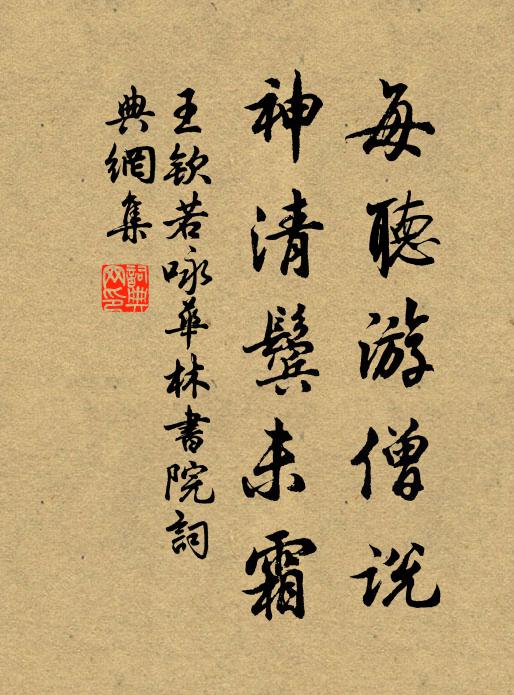 每聽游僧說
神清鬢未霜
王欽若咏華林書院詞
典網集
詞典网印